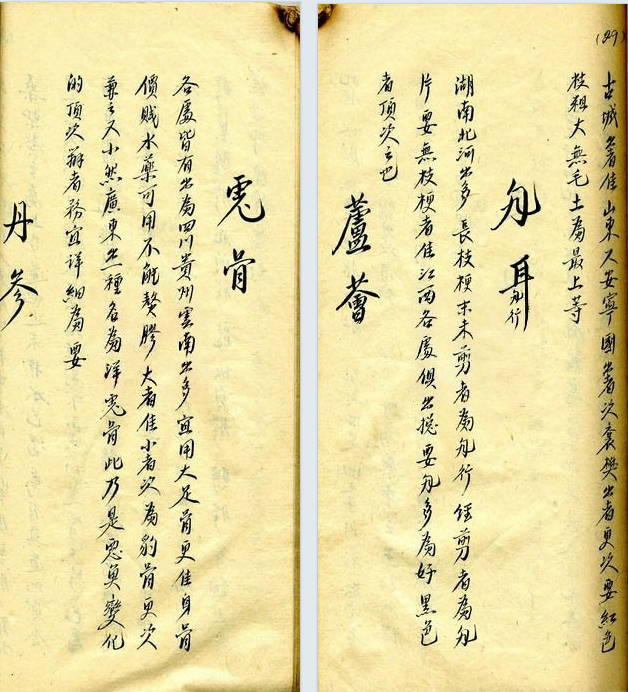 (29)
古城出者佳山東又安寧國出者次襄樊出者更次要紅色
枝粗大無毛土為最上等
勾耳
勾行
湖南北河出多長枝梗末未剪者為勾行經剪者為勾
片要無枝梗者佳江西各處俱出揔要勾多為好黑色
者頂次之也
蘆薈
虎骨
各處皆有出為四川貴州雲南出多宜用大足骨更佳身骨
價賤水藥可用不能熬膠大者佳小者次為豹骨更次
兼之又小然廣東出一種名為洋虎骨此乃是惡魚變化
的頂次辦者務宜详細為要
丹參